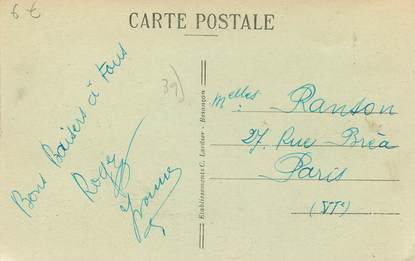 6 €
CARTE POSTALE
39)
Bons Baisers à tous
Roger
Yvonne
Etablissements C. Lardier - Besançon
Melles Ranson
27, Rue Bréa
Paris
(VIe)